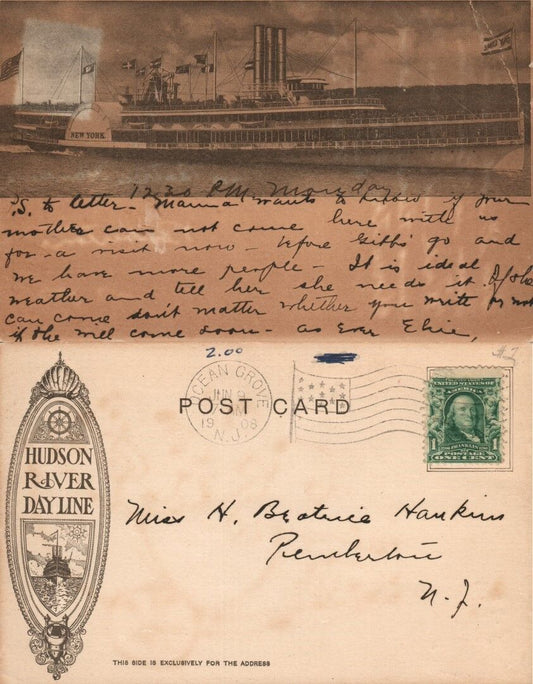 NEW YORK.
12.30 P.M. Monday
P.S. to letter - Mamma wants to know if your
mother can not come here with us
for a visit now - before Gibb's go and
we have more people - It is ideal
weather and tell her she needs it. If she
can come don't matter whether you write or not
if she will come soon - as ever Elsie,
2.00
OCEAN GROVE
JUN
1908
N.J.
POST CARD
UNITED STATES OF AMERICA
FRANKLIN
POSTAGE
1 ONE CENT 1
HUDSON
RIVER
DAY LINE
Miss H. Beatrice Hankins
Pemberton
N. J.
HUDSON
RIVER
DAY LINE
THIS SIDE IS EXCLUSIVELY FOR THE ADDRESS